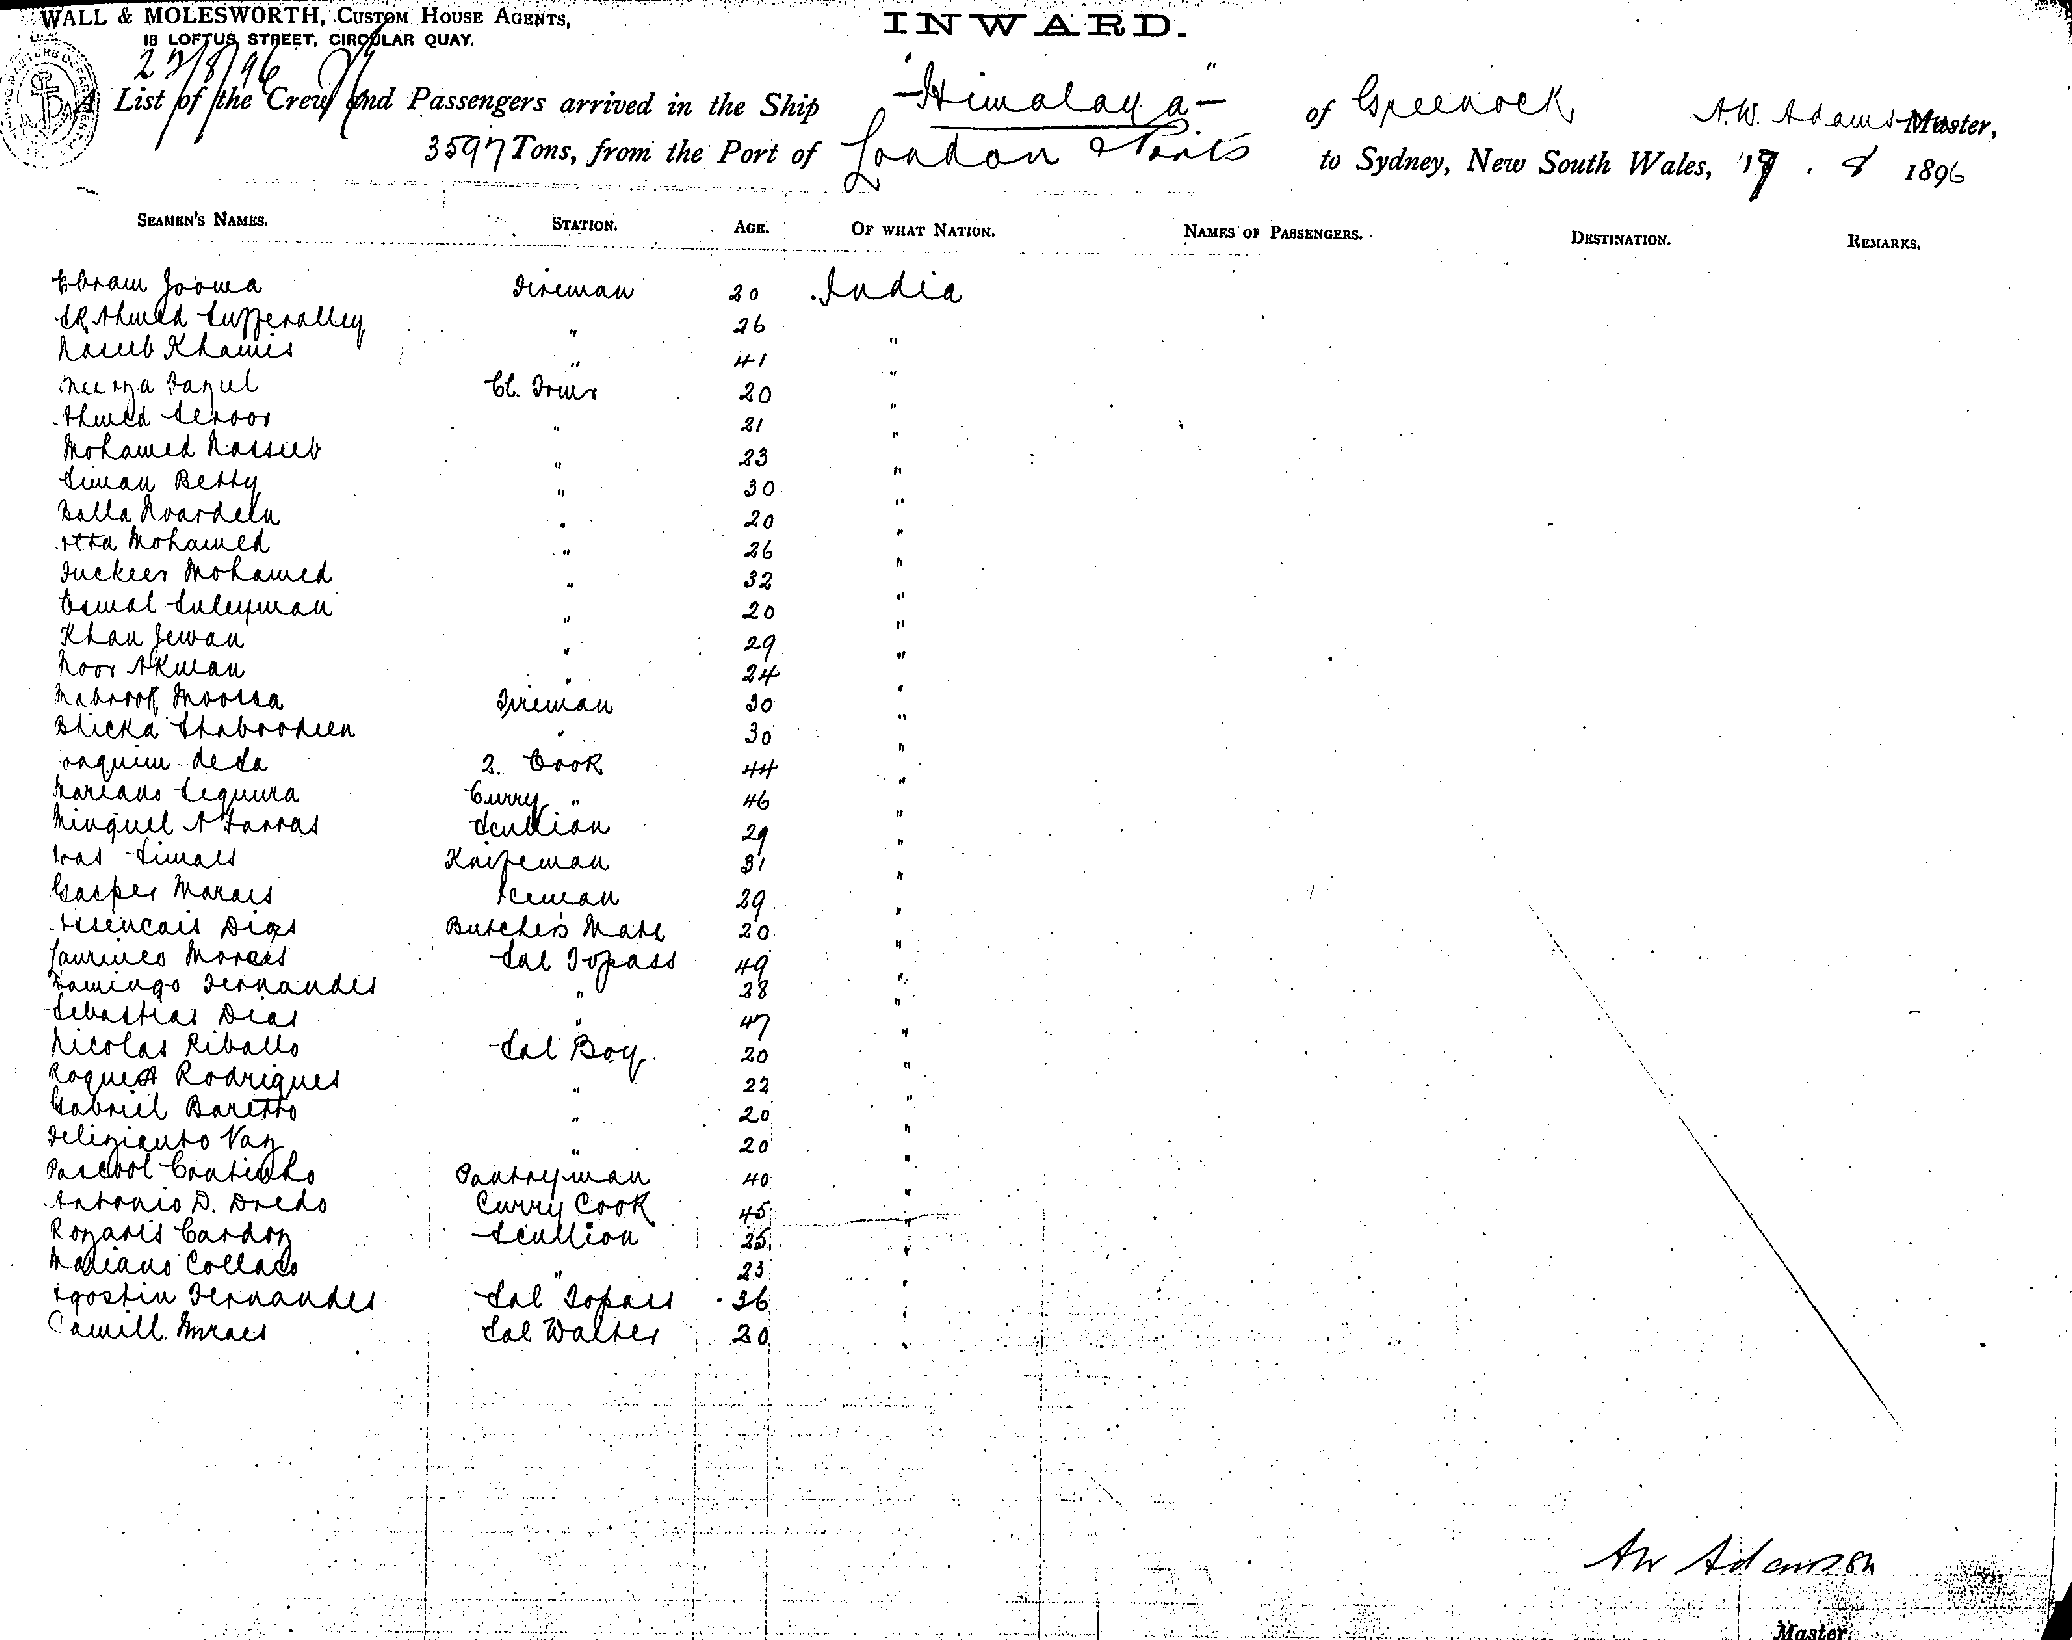 WALL & MOLESWORTH, CUSTOM HOUSE AGENTS,
18 LOFTUS STREET, CIRCULAR QUAY.
INWARD.
A List of the Crew and Passengers arrived in the Ship "Himalaya" of Greenock A.W. Adamson Master,
3597 Tons, from the Port of London & Ports to Sydney, New South Wales, 19 . 8 1896
SEAMEN'S NAMES. STATION. AGE. OF WHAT NATION. NAMES OF PASSENGERS. DESTINATION. REMARKS.
Ebram Jooma Fireman 20 India
Ahmed Sufferalley " 26 "
Naseeb Khamis " 41 "
Fazul Cl. Trmr 20 "
Ahmed Seroor " 21 "
Mohamed Nasseeb " 23 "
Siman Betty " 30 "
Balla Noordeen " 20 "
Atta Mohamed " 26 "
Fuckeer Mohamed " 32 "
Esmal Suleyman " 20 "
Khan Jewan " 29 "
Noor Akman " 24 "
Mabrook Moossa Fireman 30 "
Bhicka Shaboodeen " 30 "
Joaquim deSa 2. Cook 44 "
Mariano Sequura Curry " 46 "
Minguel A Farras Scullion 29 "
Joas Simaes Knifeman 31 "
Gasper Marais Iceman 29 "
Assencais Dias Butcher's Mate 20 "
Laurinco Moraes Sal Topass 49 "
Domingo Fernandes " 38 "
Sebastias Dias " 47 "
Nicolas Ribello Sal Boy 20 "
Roque A Rodrigues " 22 "
Gabriel Baretto " 20 "
Felizianto Vaz " 20 "
Pascool Coutinho Pantryman 40 "
Antonio D. Dredo Curry Cook 45 "
Rozaris Cardoz Scullion 25 "
Mariano Collaco " 23 "
Agostin Fernandes Sal Topass 36 "
Camill Moraes Sal Waiter 20 "
AW Adamson
Master.